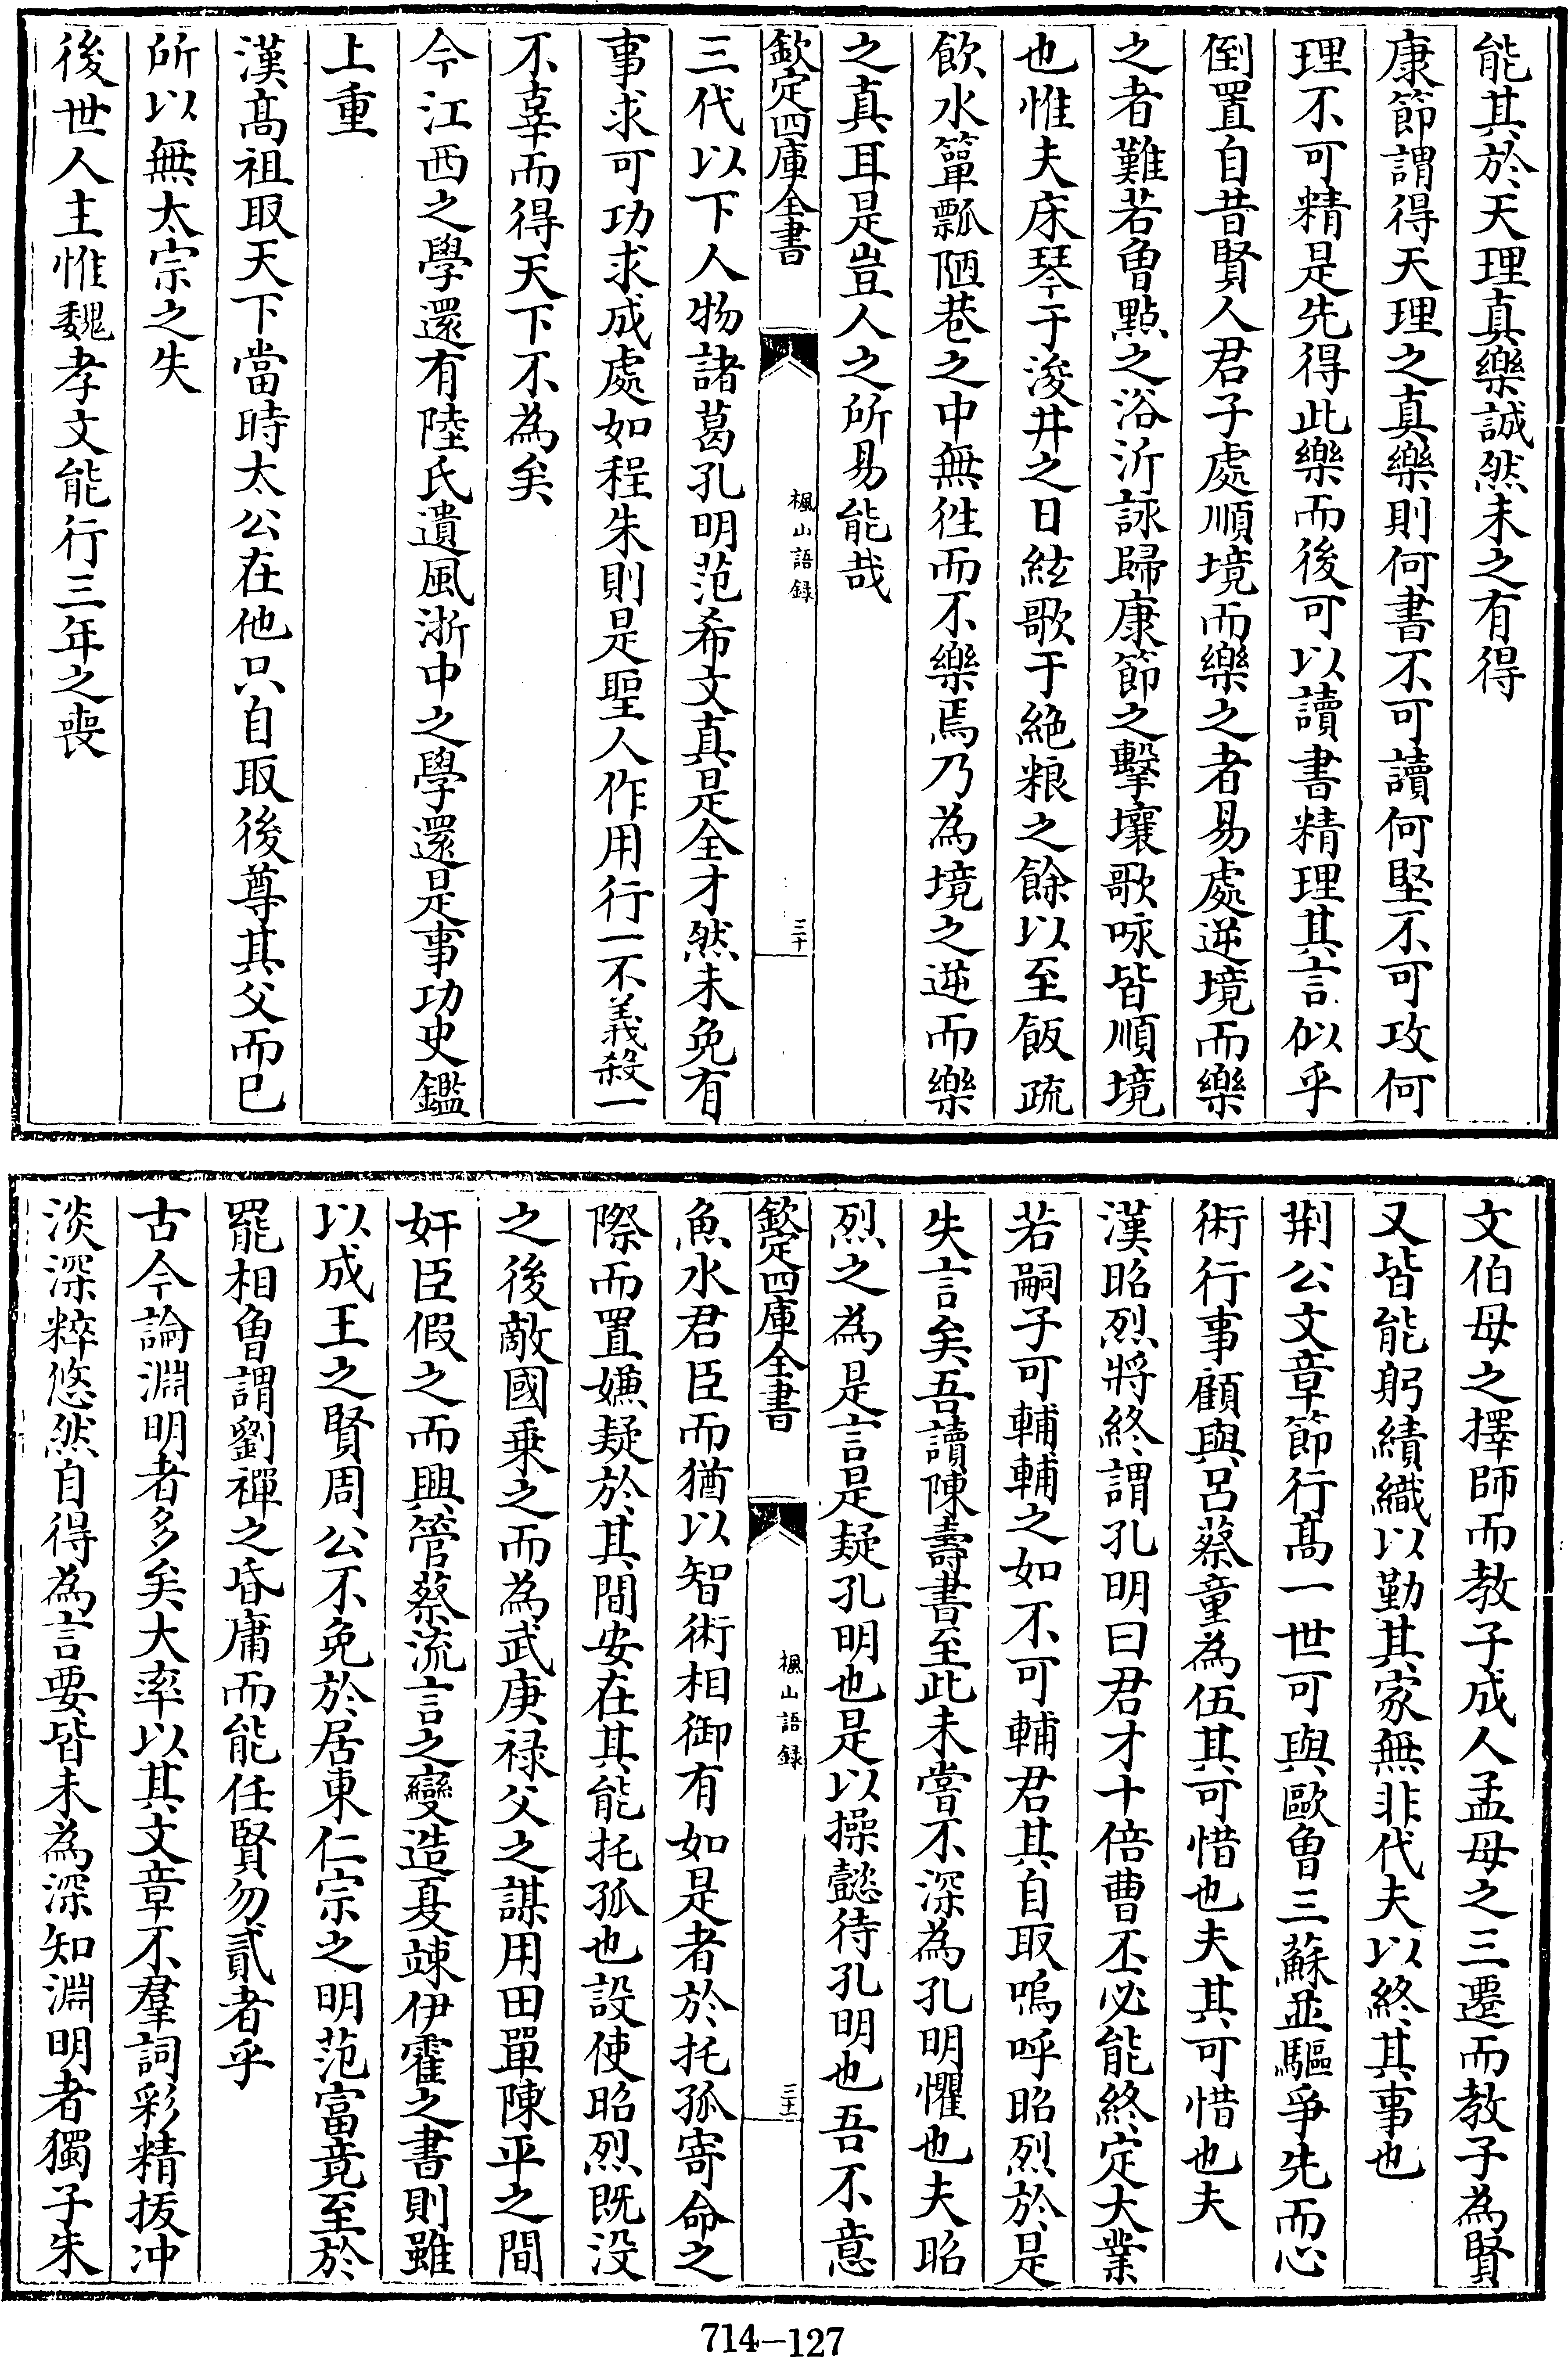 能其於天理真樂誠然未之有得
康節謂得天理之真樂則何書不可讀何堅不可攻何
理不可精是先得此樂而後可以讀書精理其言似乎
倒置自昔賢人君子處順境而樂之者易處逆境而樂
之者難若曾點之浴沂詠歸康節之擊壤歌咏皆順境
也惟夫床琴于浚井之日絃歌于絶粮之餘以至飯疏
飲水簞瓢陋巷之中無徃而不樂焉乃為境之逆而樂
之真耳是豈人之所易能哉
欽定四庫全書
楓山語録
三十
三代以下人物諸葛孔明范希文真是全才然未免有
事求可功求成處如程朱則是聖人作用行一不義殺一
不辜而得天下不為矣
今江西之學還有陸氏遺風浙中之學還是事功史鑑
上重
漢髙祖取天下當時太公在他只自取後尊其父而已
所以無太宗之失
後世人主惟魏孝文能行三年之喪
文伯母之擇師而教子成人孟母之三遷而教子為賢
又皆能躬績織以勤其家無非代夫以終其事也
荆公文章節行髙一世可與歐曾三蘇並驅爭先而心
術行事顧與呂蔡童為伍其可惜也夫其可惜也夫
漢昭烈將終謂孔明曰君才十倍曹丕必能終定大業
若嗣子可輔輔之如不可輔君其自取嗚呼昭烈於是
失言矣吾讀陳壽書至此未嘗不深為孔明懼也夫昭
烈之為是言是疑孔明也是以操懿待孔明也吾不意
欽定四庫全書
楓山語録
三十一
魚水君臣而猶以智術相御有如是者於托孤寄命之
際而置嫌疑於其間安在其能托孤也設使昭烈既没
之後敵國乗之而為武庚禄父之謀用田單陳平之間
奸臣假之而興管蔡流言之變造夏竦伊霍之書則雖
以成王之賢周公不免於居東仁宗之明范富竟至於
罷相曾謂劉禪之昏庸而能任賢勿貳者乎
古今論淵明者多矣大率以其文章不羣詞彩精拔冲
淡深粹悠然自得為言要皆未為深知淵明者獨子朱
714-127